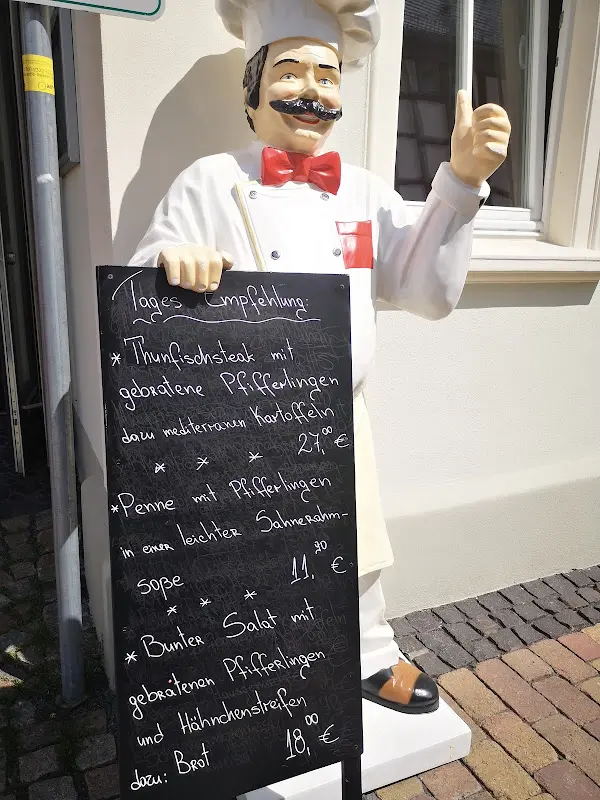 Tages Empfehlung:
* Thunfischsteak mit
gebratene Pfifferlingen
dazu mediterranen Kartoffeln
27,00 €
* * *
* Penne mit Pfifferlingen
in einer leichter Sahnerahm-
soße 11,90 €
* * *
* Bunter Salat mit
gebratenen Pfifferlingen
und Hähnchenstreifen
dazu: Brot 18,00 €